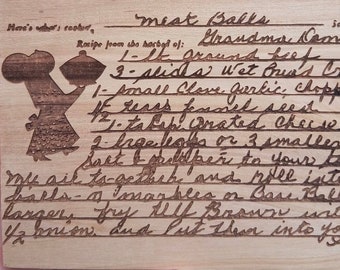 Here's what's cookin' Meat Balls
Recipe from the kitchen of: Grandma Dom
1 - lb ground beef
3 - slices Wet Bread
1 - small Clove garlic, chopp
1/2 teas fennel seed
1 - tabsp grated cheese
2 large eggs or 3 smaller
Salt & pepper to your ta
Mix all together and roll into
balls - or marbles or Base Ball
larger. Fry till Brown wi
1/2 onion and Put them into yo